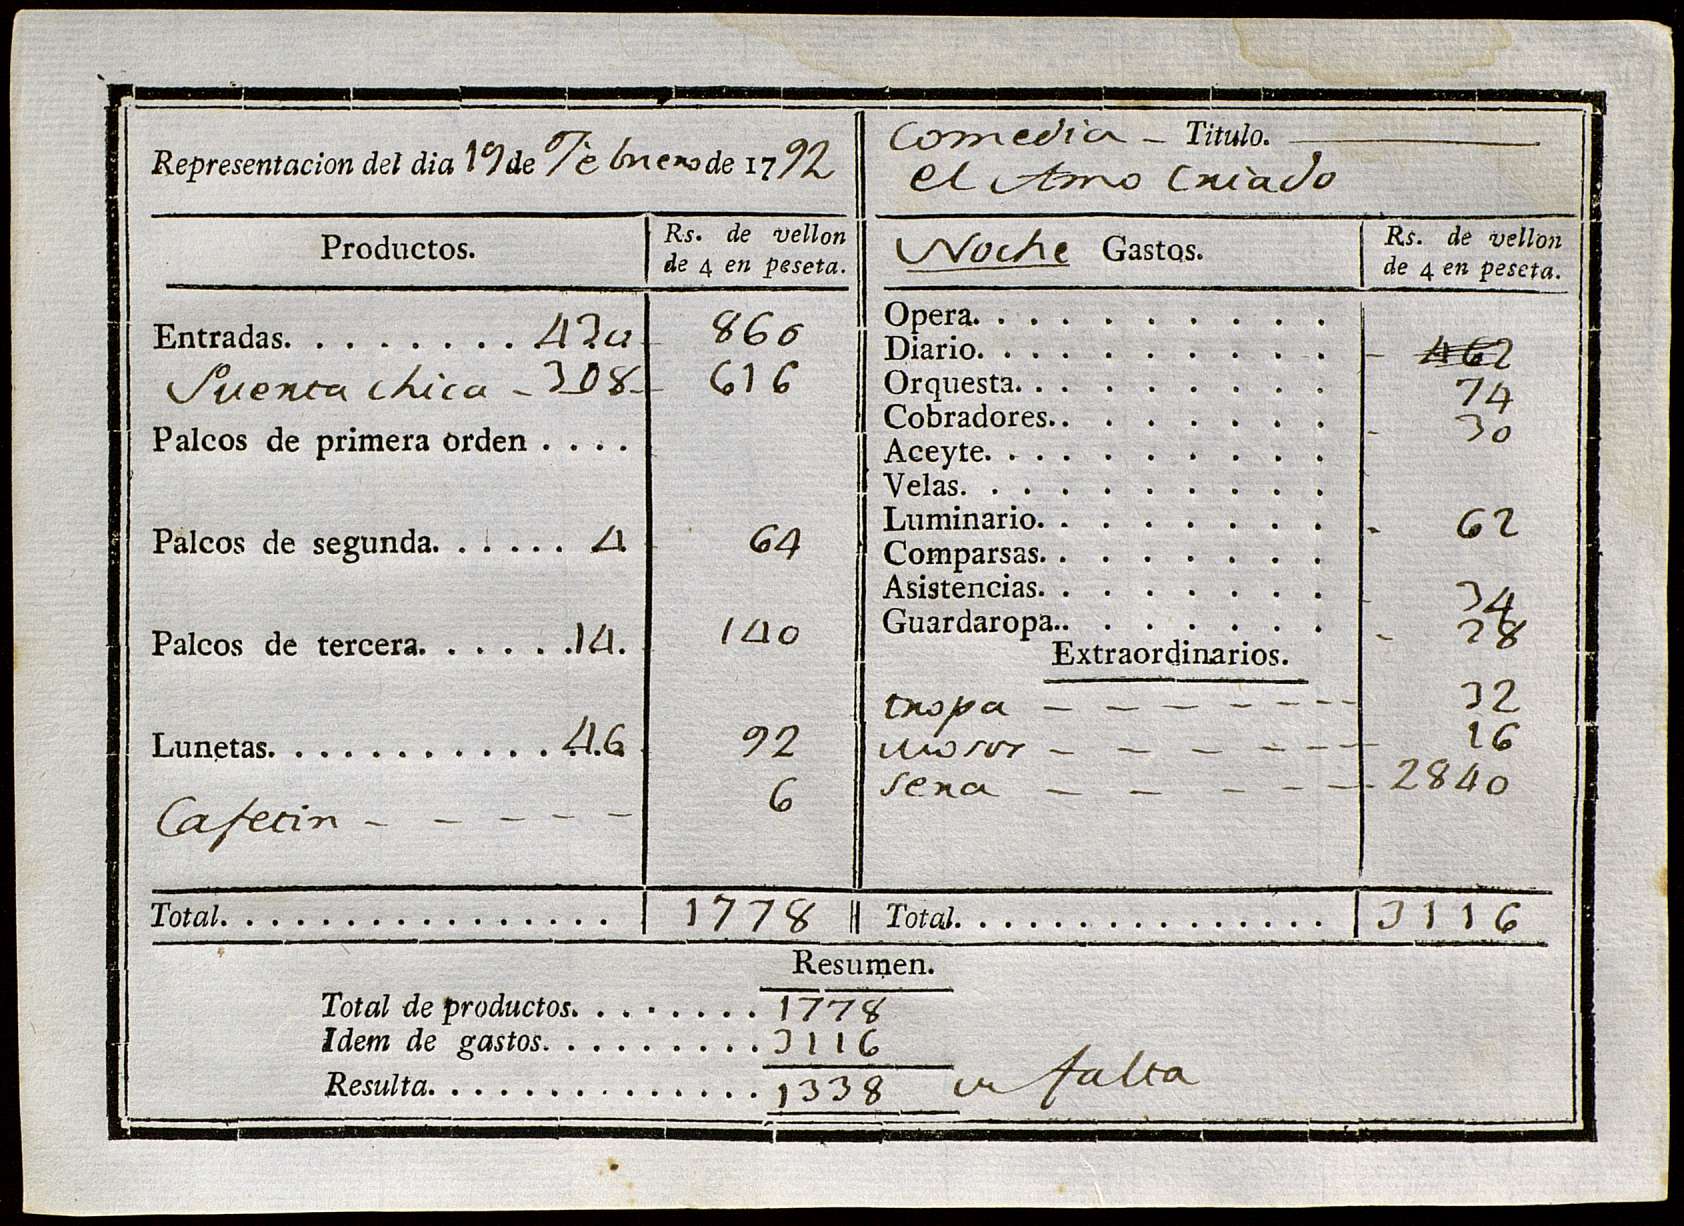 Representacion del dia 19 de Febrero de 1792
Productos. Rs. de vellon de 4 en peseta.
Entradas. . . . . . . . . 430 860
Puerta chica - 308 - 616
Palcos de primera orden . . . .
Palcos de segunda. . . . . . 4 64
Palcos de tercera. . . . . . .14. 140
Lunetas. . . . . . . . . . . .46 92
Cafetin - - - - - - 6
Total. . . . . . . . . . . . . . . . 1778
Comedia - Titulo.
el Amo Criado
Noche Gastos. Rs. de vellon de 4 en peseta.
Opera. . . . . . . . . .
Diario. . . . . . . . . . - 462
Orquesta. . . . . . . . . 74
Cobradores. . . . . . . . - 30
Aceyte. . . . . . . . . .
Velas. . . . . . . . . .
Luminario. . . . . . . . - 62
Comparsas. . . . . . . .
Asistencias. . . . . . . . - 34
Guardaropa. . . . . . . . - 28
Extraordinarios.
tropa - - - - - - - - 32
mosos - - - - - - - 16
sena - - - - - - 2840
Total. . . . . . . . . . . . . . . 3116
Resumen.
Total de productos. . . . . . . . 1778
Idem de gastos. . . . . . . . . 3116
Resulta. . . . . . . . . . . . . . 1338 en falta